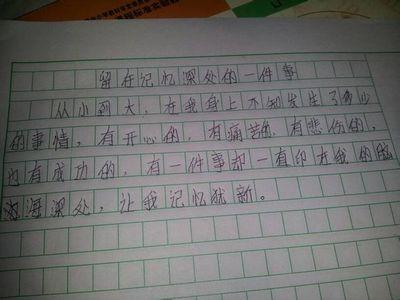 留在记忆深处的一件事
从小到大，在我身上不知发生了多少
的事情。有开心的，有痛苦的，有悲伤的，
也有成功的，有一件事却一直印在我的脑
海深处，让我记忆犹新。